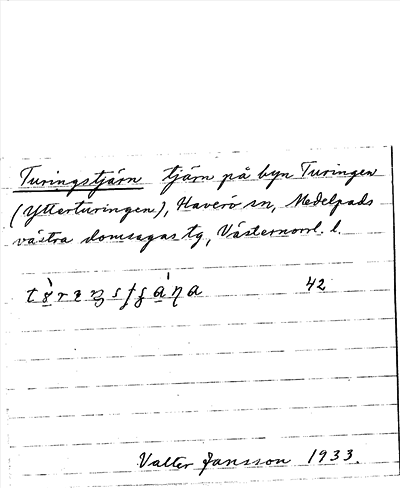 Turingstjärn tjärn på byn Turingen
(Ytterturingen), Haverö sn, Medelpads
västra domsagas tg, Västernorrl. l.
42
Valter Jansson 1933.